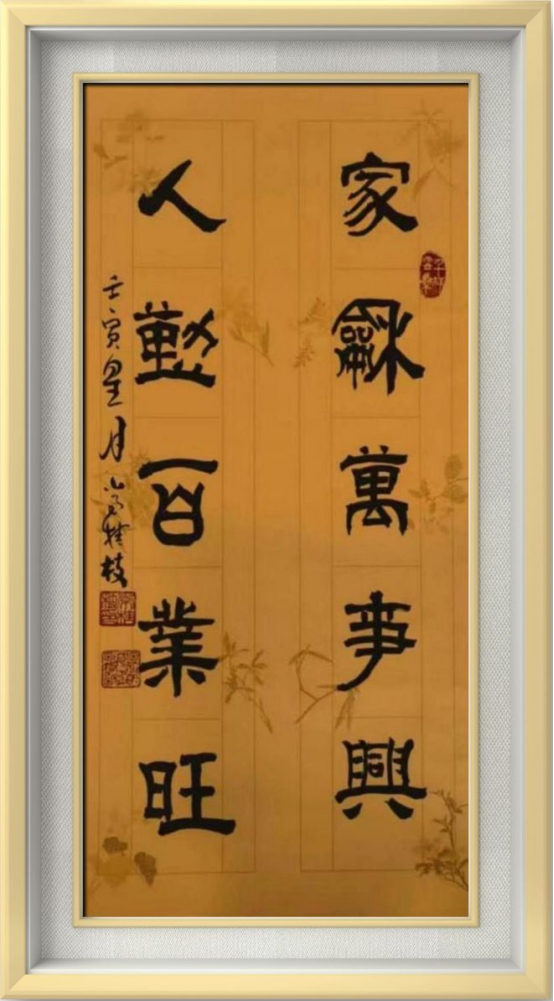 家龢萬事興
人勤百業旺
壬寅皇月 高桂枝